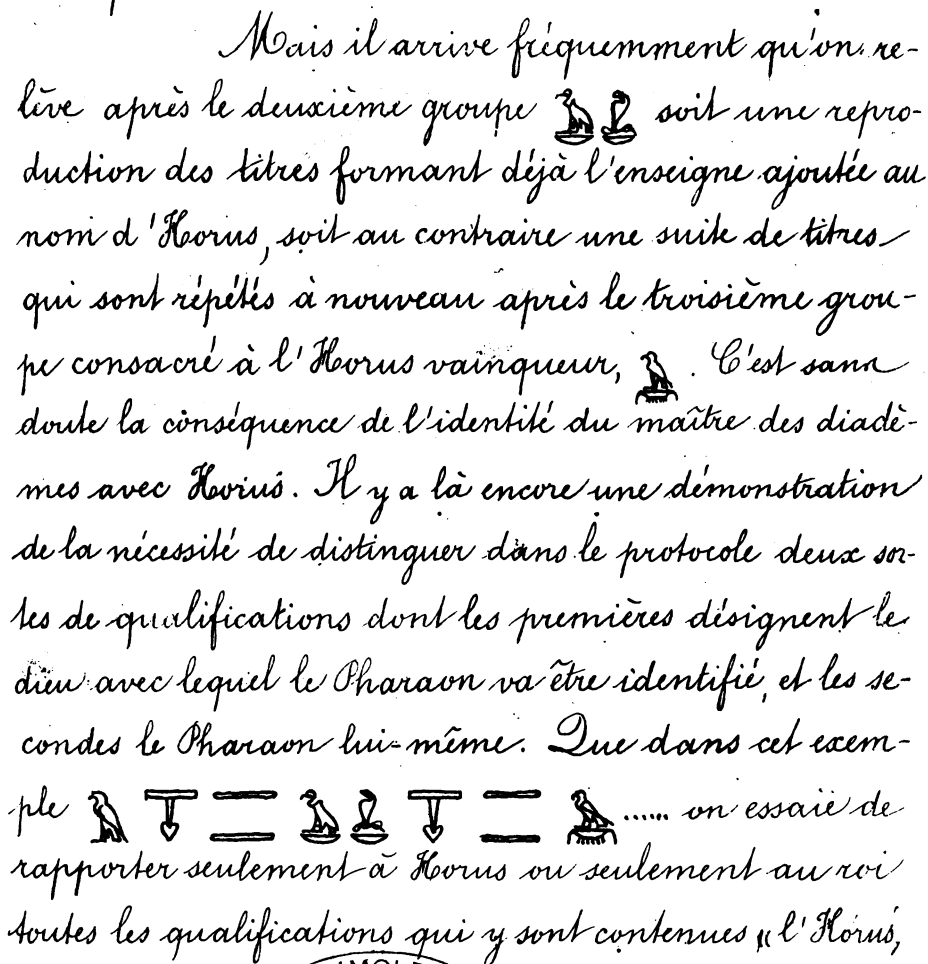 Mais il arrive fréquemment qu'on re-
lève après le deuxième groupe 𓅒𓆗 soit une repro-
duction des titres formant déjà l'enseigne ajoutée au
nom d'Horus, soit au contraire une suite de titres
qui sont répétés à nouveau après le troisième grou-
pe consacré à l'Horus vainqueur, 𓅉. C'est sans
doute la conséquence de l'identité du maître des diadè-
mes avec Horus. Il y a là encore une démonstration
de la nécessité de distinguer dans le protocole deux sor-
tes de qualifications dont les premières désignent le
dieu avec lequel le Pharaon va être identifié, et les se-
condes le Pharaon lui-même. Que dans cet exem-
ple 𓅃 𓄋 𓇾 𓇾 𓅒 𓄋 𓇾 𓇾 𓅉 ...... on essaie de
rapporter seulement à Horus ou seulement au roi
toutes les qualifications qui y sont contenues « l'Horus,